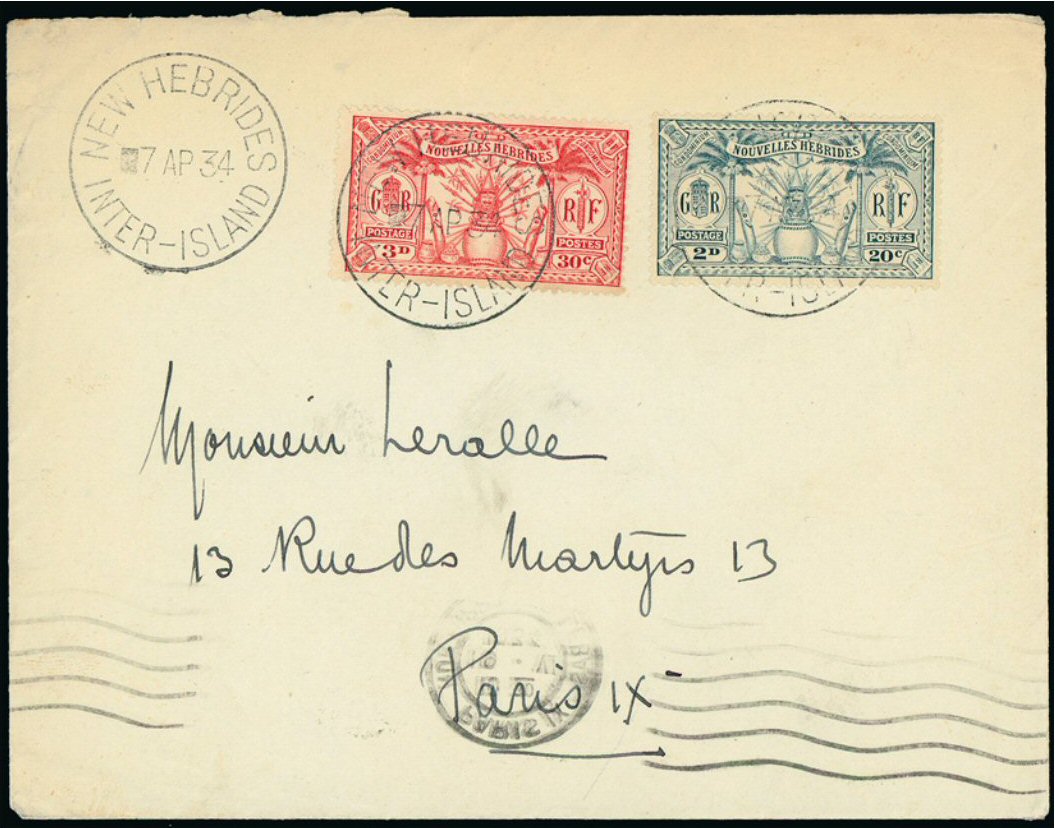 NEW HEBRIDES
7 AP 34
INTER-ISLAND
NOUVELLES HEBRIDES
G R
R F
POSTAGE
POSTES
3D
30c
AP
INTER-ISLAND
NOUVELLES HEBRIDES
G R
R F
POSTAGE
POSTES
2D
20c
Monsieur Leralle
13 Rue des Martyrs 13
Paris IX